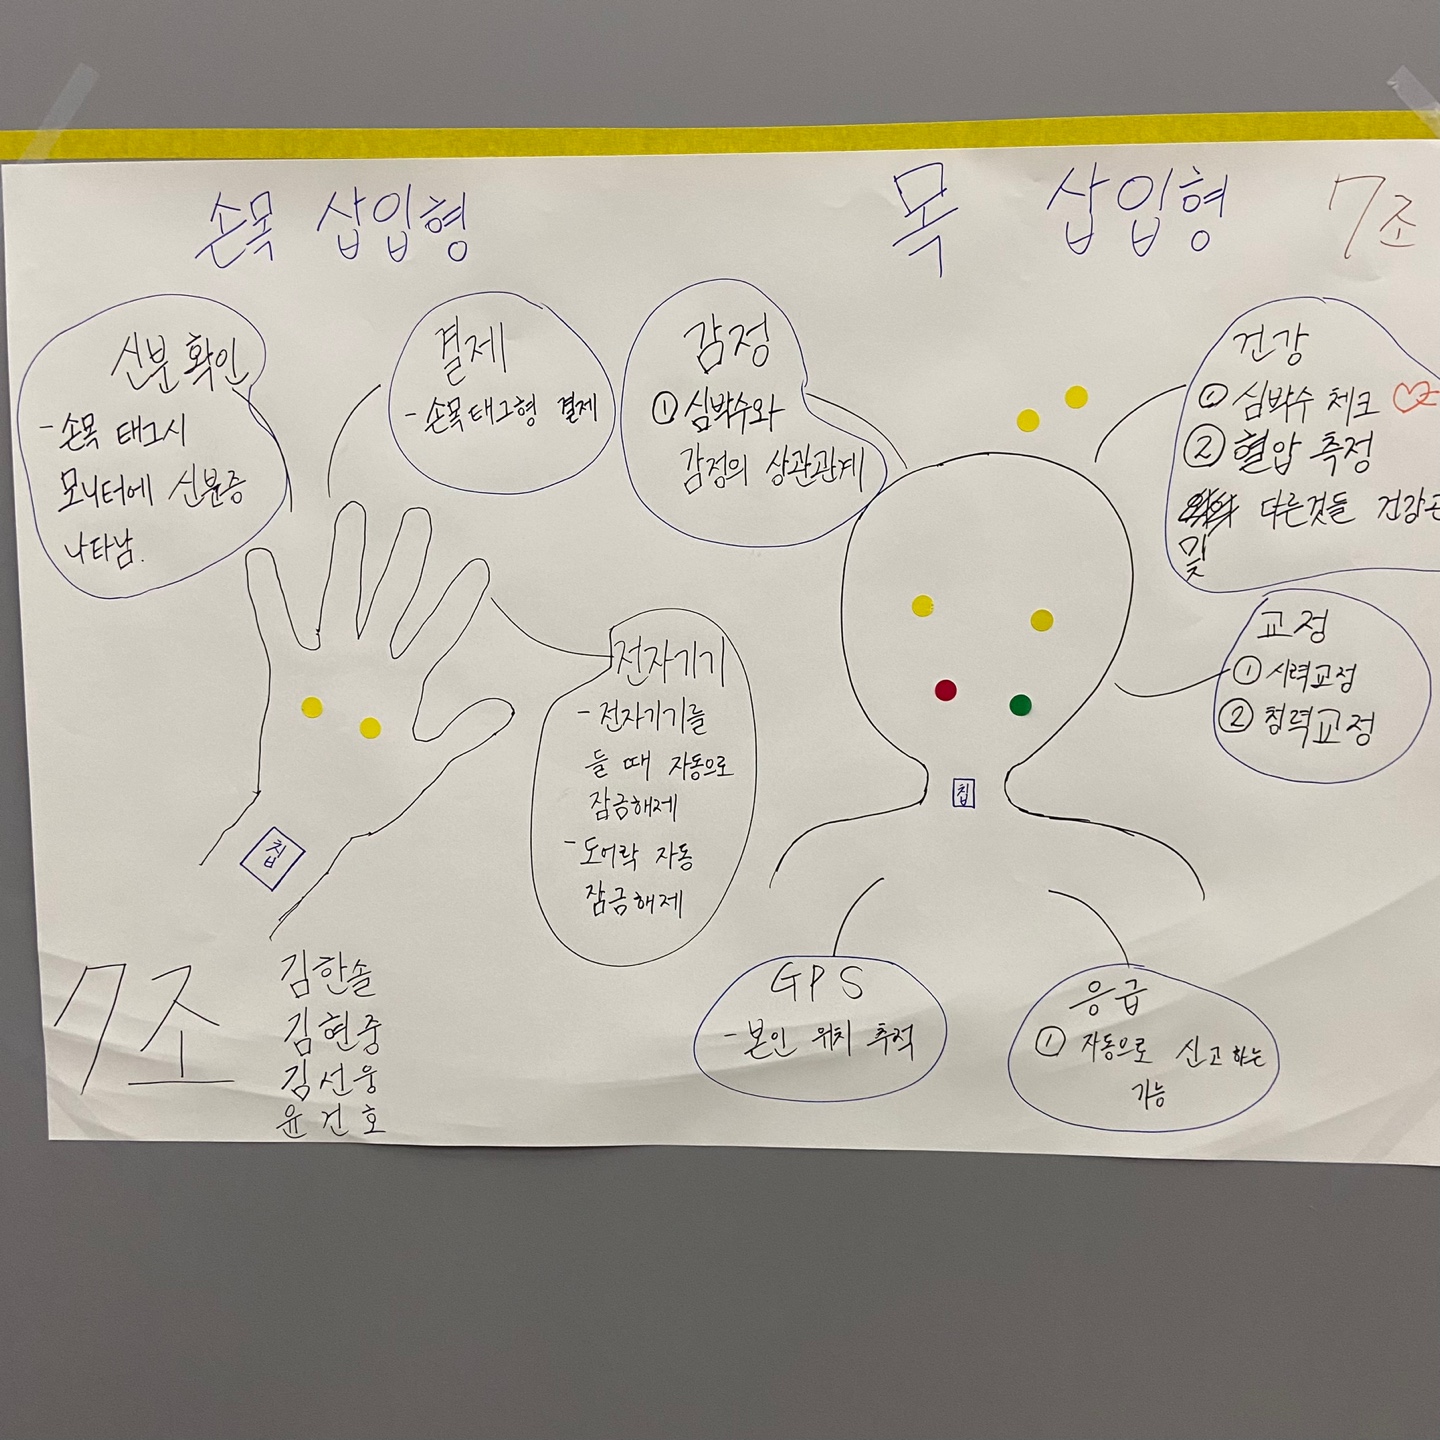 손목 삽입형
목 삽입형
7조
신분확인
- 손목 태그시
모니터에 신분증
나타남.
결제
- 손목태그형 결제
감정
① 심박수와
감정의 상관관계
건강
① 심박수 체크
② 혈압 측정
및 다른것들 건강
교정
① 시력교정
② 청력교정
전자기기
- 전자기기를
들 때 자동으로
잠금해제
- 도어락 자동
잠금해제
칩
칩
GPS
- 본인 위치 추적
응급
① 자동으로 신고하는
가능
7조
김한솔
김현중
김선웅
윤건호